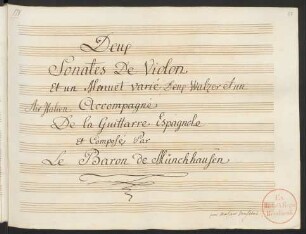 Deux
Sonates De Violon
Et un Menuet varié Deux Walzer et un
Air Italien. Accompagné
De la Guittarre Espagnole
et Composé Par
Le Baron de Münckhausen